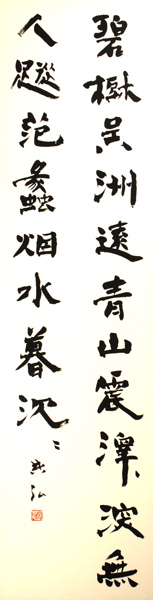 碧樹吳洲遠青山震澤深無
人蹤范蠡烟水暮沈〻